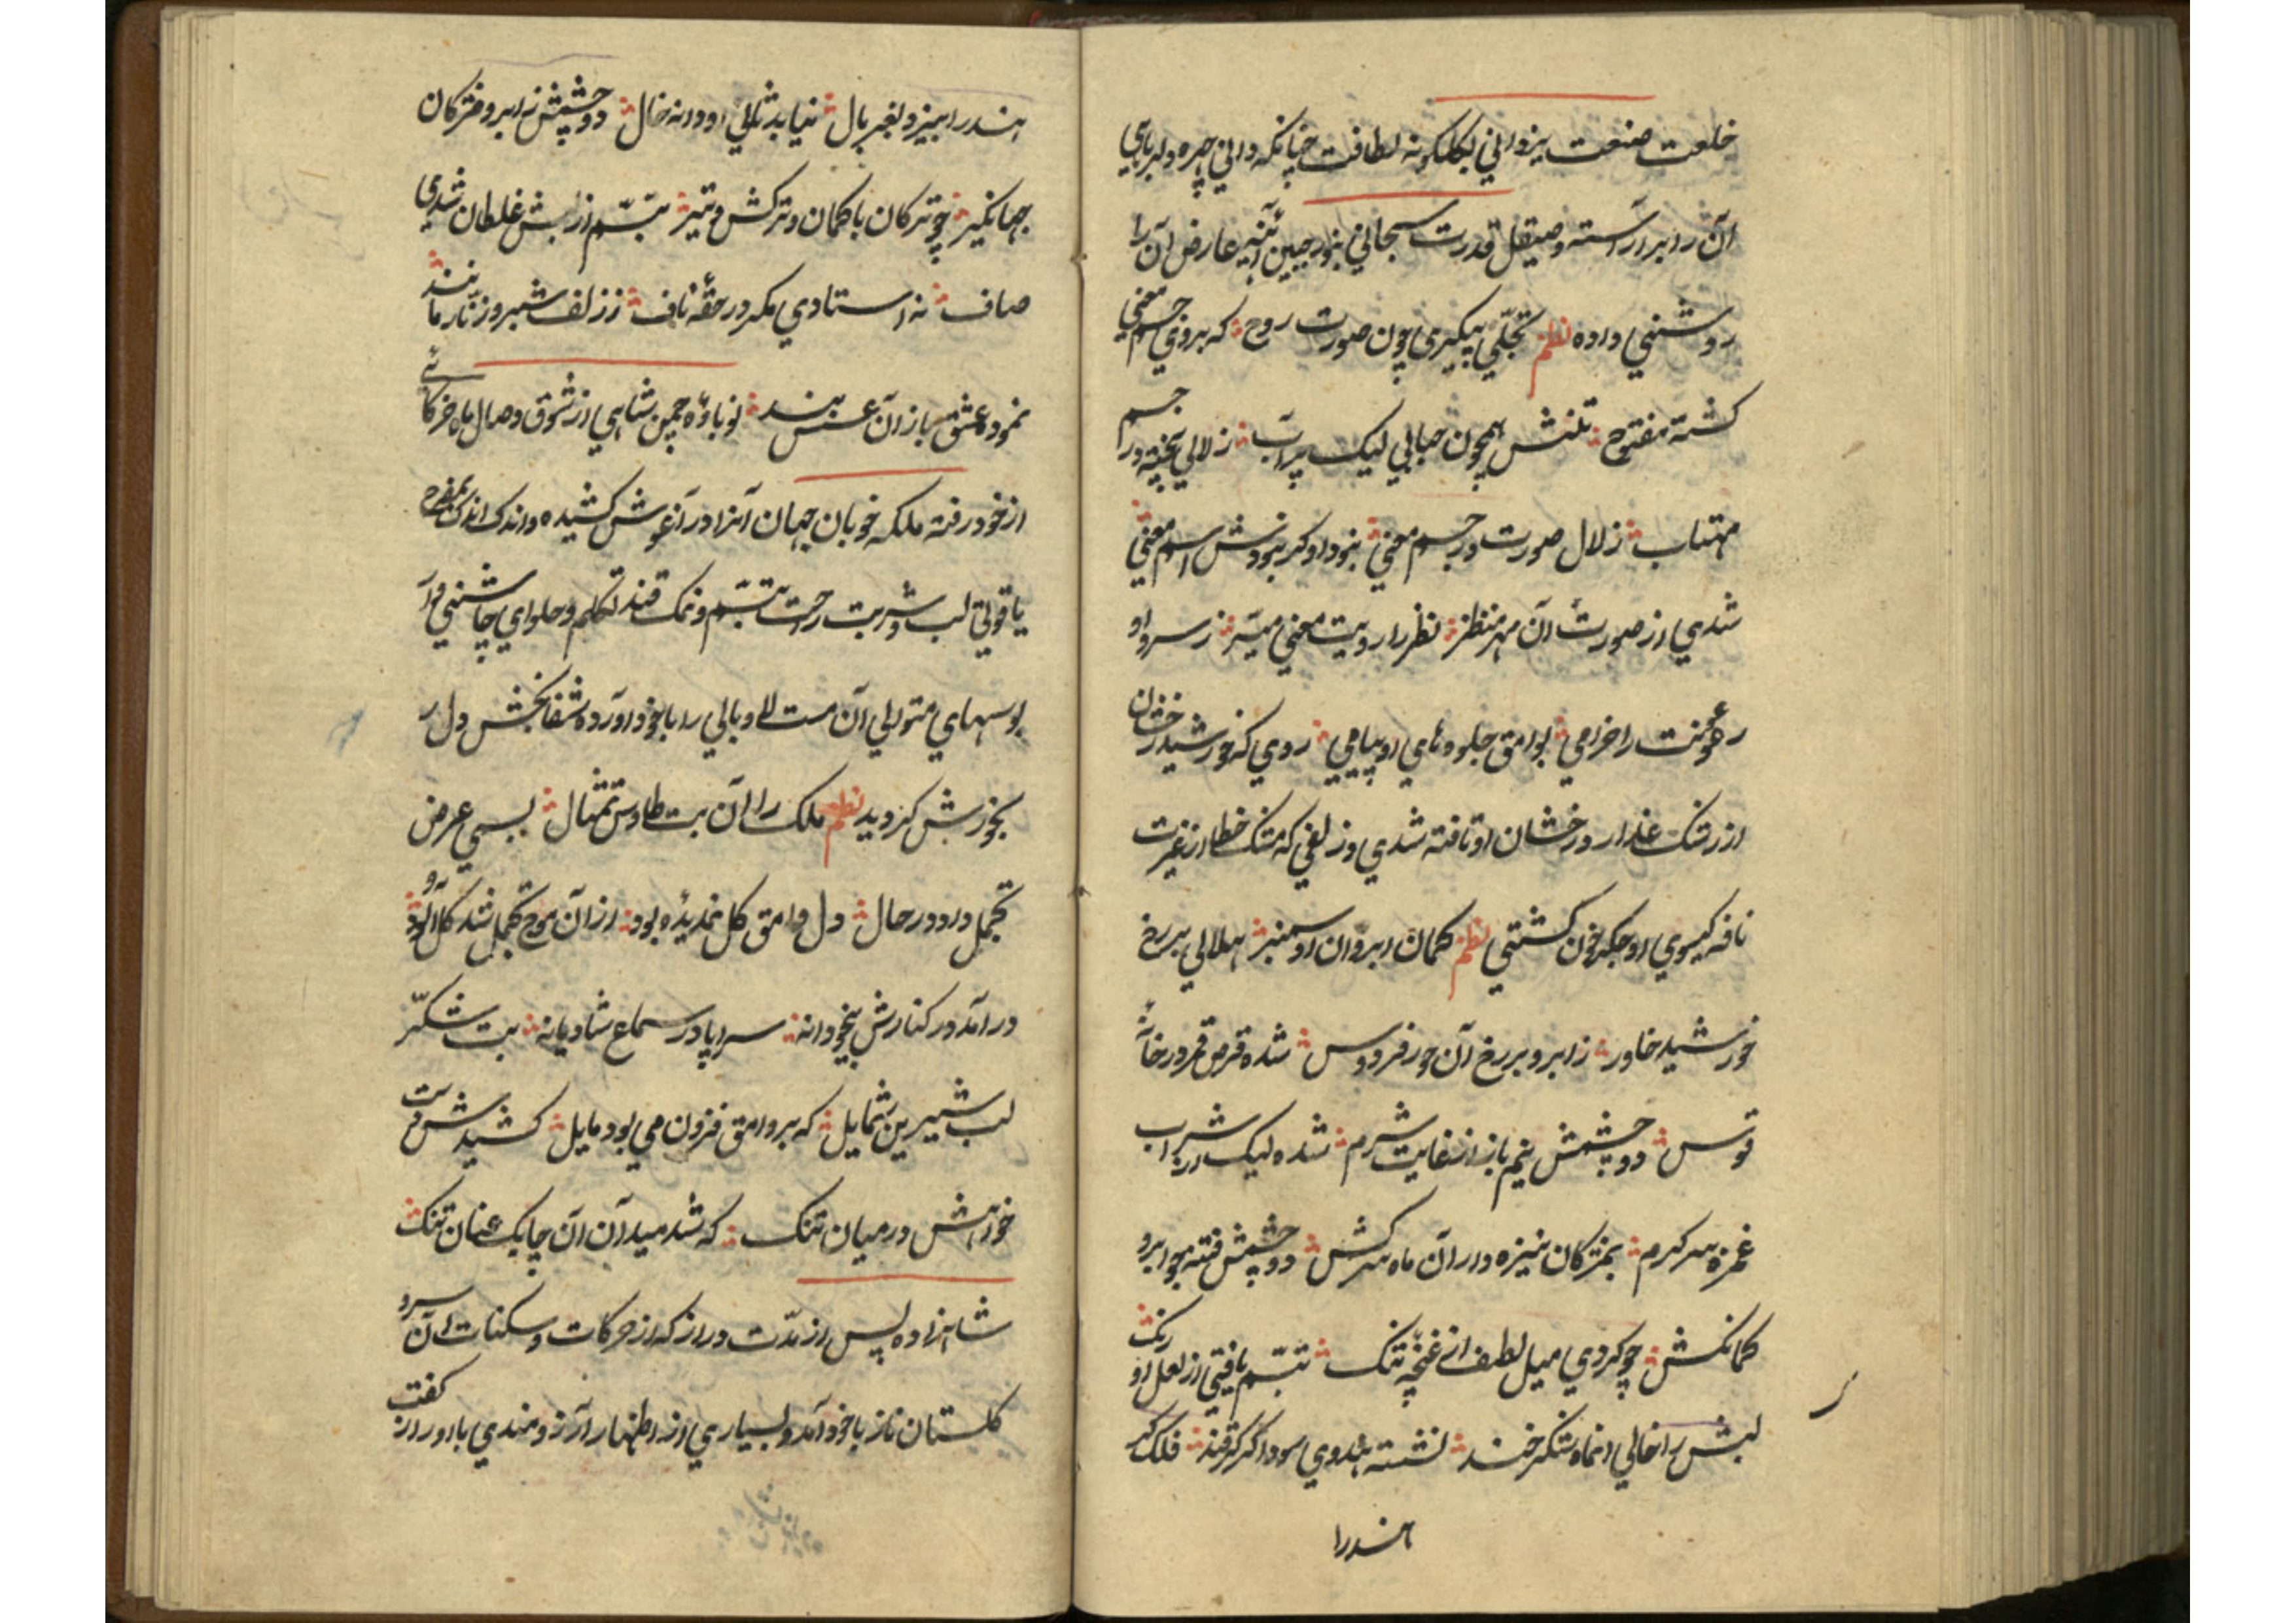 خلعت صنعت یزدانی بگلگونه لطافت چنانکه دانی چهره دلربای
آن را برآراسته و صیقل قدرت سبحانی بنور جبین آئینه عارض آن را
روشنی داده نظم تجلّی پیکیری چون صورت روح که بر وی جسم معنی
کشته مفتوح تنش همچون حبابی لیک پرآب زلالی بیخته در جسم
مهتاب زلال صورت در جسم معنی بنود او کر بنودش اسم معنی
شدی از صورت آن مهر منظر نظر را رویت معنی میسّر ز سرو او
رعونت را خرامی بوامق جلوه های او پیامی روی که خورشید رخشان
از رشک عذار درخشان او تافته شدی و زلفی که مشک خطا از غیرت
نافه کیسوی او جکر خون کشتی نظم کمان ابروان او سمنبر هلالی بر رخ
خورشید خاور ز ابرو بر رخ آن حور فردوس شده قرص قمر در خانهٔ
قوس دو چشمش نیم باز از غایت شرم شده لیک از شراب
غمزه سرکرم بمژکان نیزه دار آن ماه سرکش دو چشم فتنه جو ابرو
کمانکش چو کردی میل لطف از غنچه تنک تبسّم یافتی از لعل او رنک
لبش را خالی انماه شکر خند نشسته هندوی سوداکر قند فلک کر
هندرا
هندرا بیزد بغربال نیابد ثانی او دانه خال دو چشمش زابرو مژکان
جهانکیر چو ترکان با کمان و ترکش و تیر تبسّم از لبش غلطان شدی
صاف نه استادی مکر در حقّه ناف ز زلف شبرو زنّار مانند
نمود عشقباز آن عسس بند نوباوه چمن شاهی از شوق وصال ماه خرکاهی
از خود رفته ملکه خوبان جهان آنرا در آغوش کشیده و اندک اندک بمفرح
یاقوتی لب و شربت راحت تبسّم و نمک قند تکلم و حلوای چاشنی دار
بوسهای متوالی آن مست لاوبالی را با خود آورده شفابخش دل ر
بخورش کردید نظم ملک را آن بت طاوس تمثال بسی عرض
تجمل داد در حال دل وامق کل نمدیده بود از آن موج تجمل شد کل آلود
درآمد در کنارش بیخودانه سراپا در سماع شادیانه بت شکّر
لب شیرین شمایل که بر وامق فزون می بود مایل کشیدش مست
خواهش در میان تنک که شد میدان آن چابک عنان تنک
شاهزاده پس از مدّت دراز که از حرکات و سکنات آن سرو
کلستان ناز با خود آمد و بسیاری از اظهار آرزومندی با او راز کفت